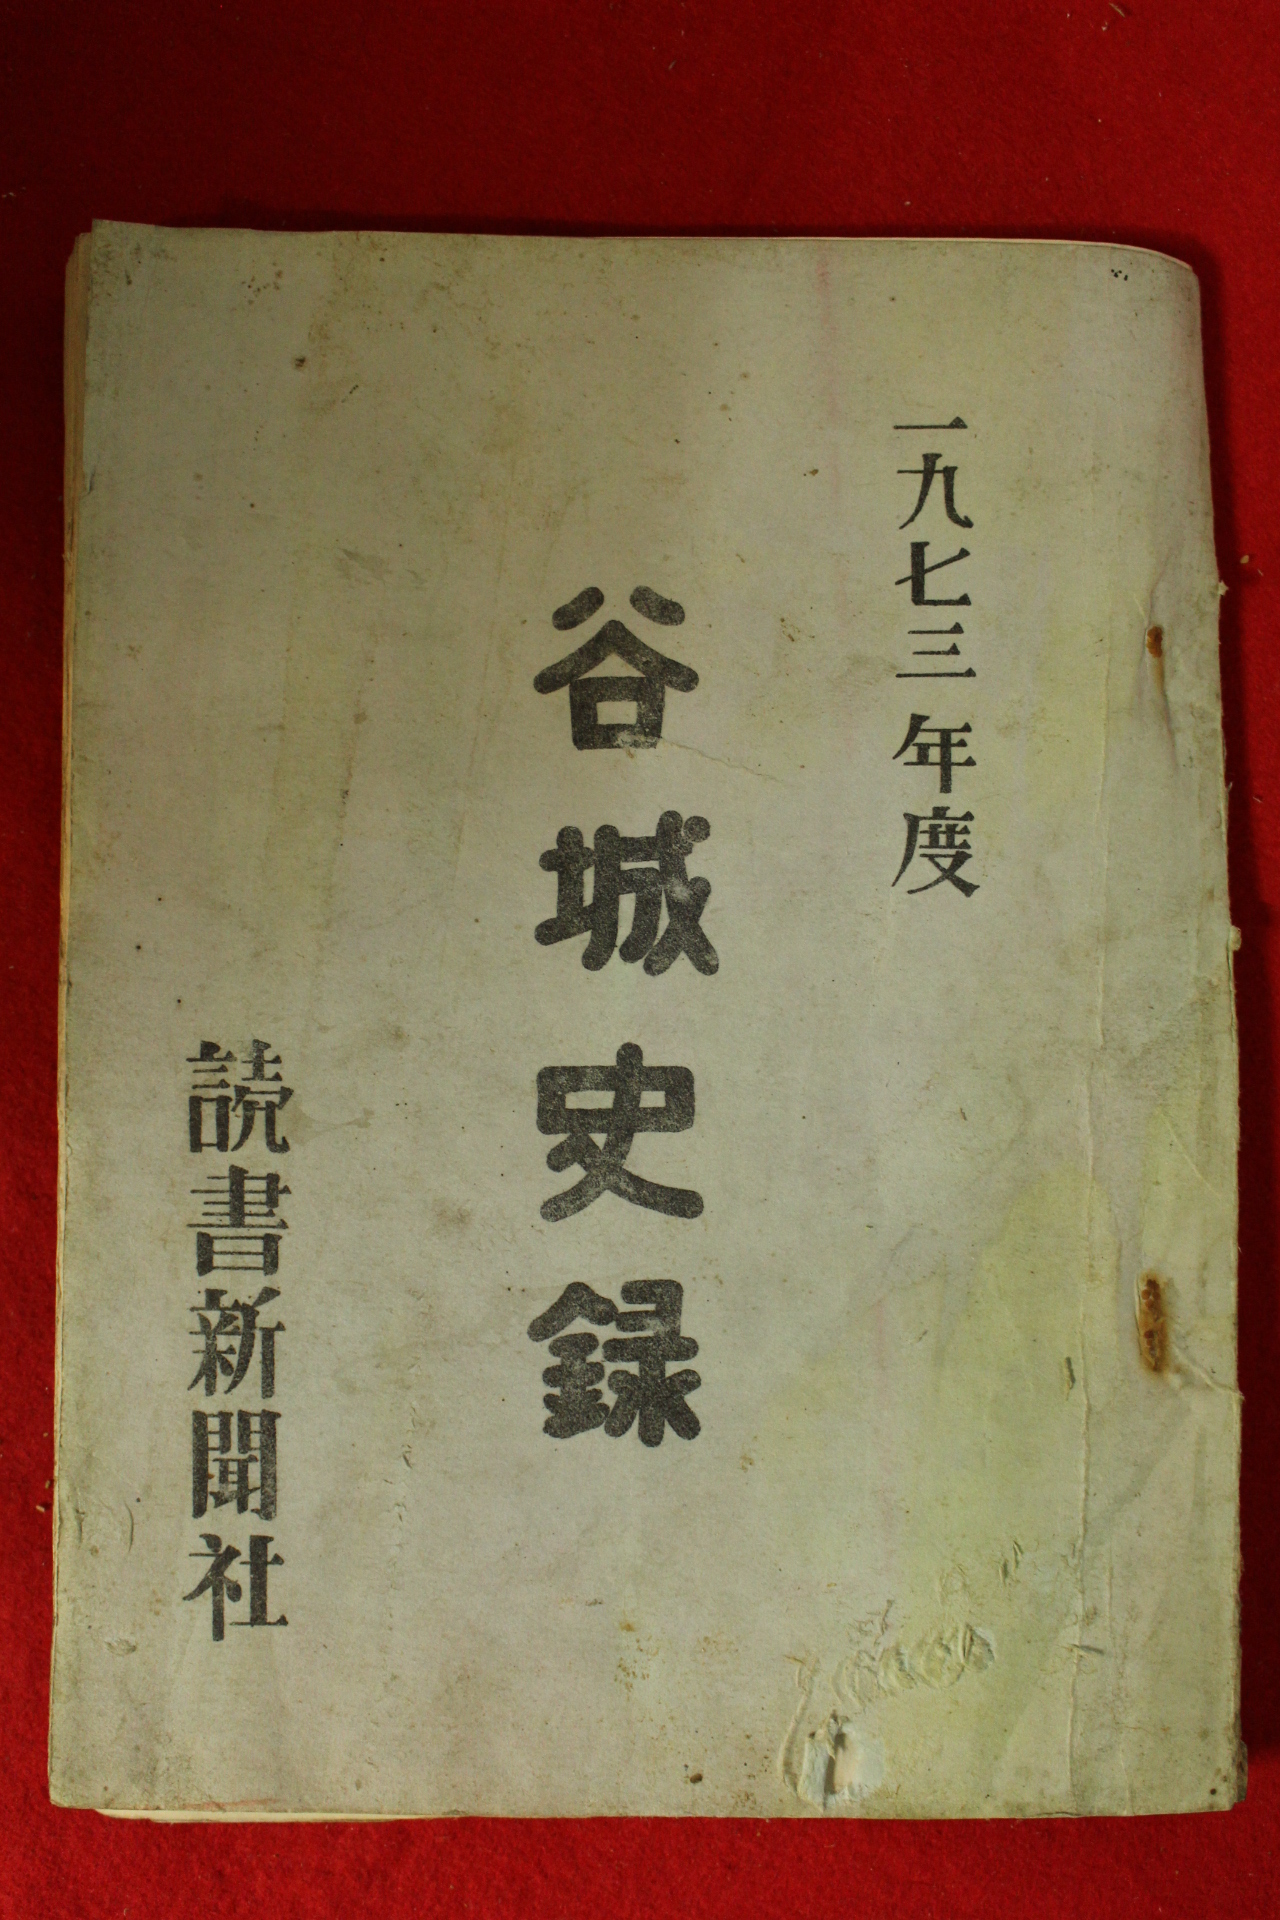 一九七三年度
谷城史録
読書新聞社